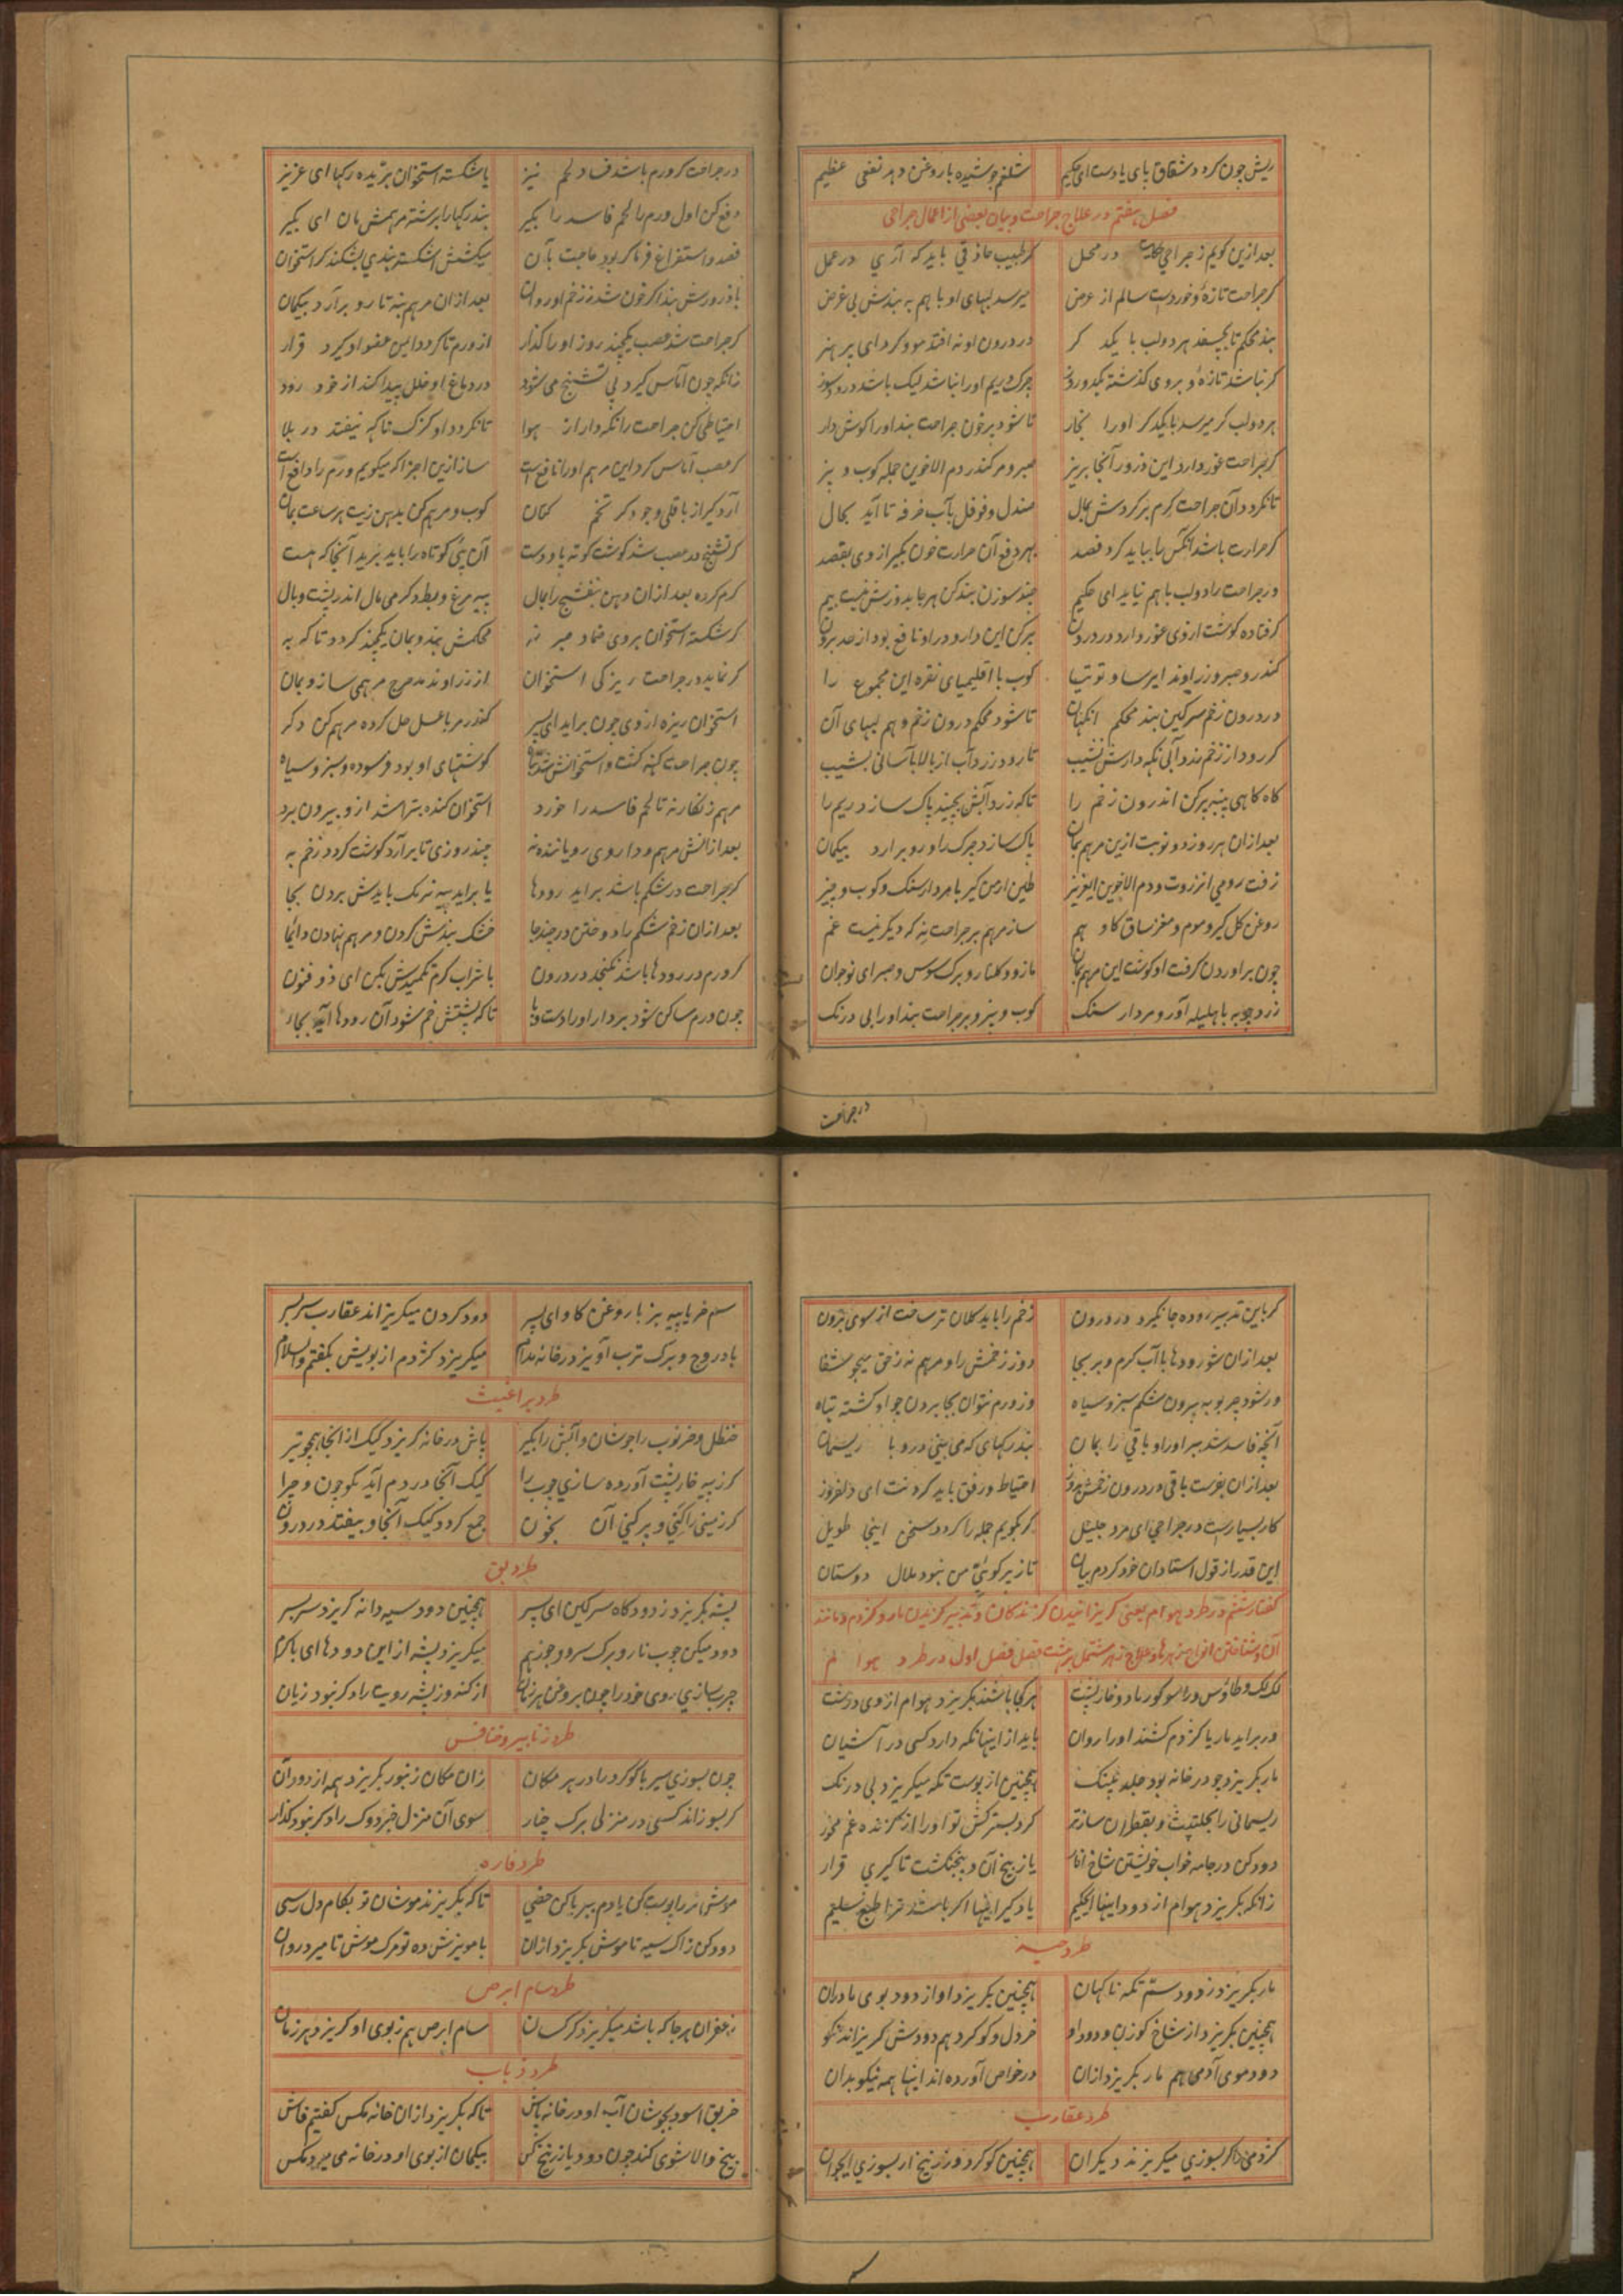 ریش چون کرد و شقاق پای یا دست ای حکیم شلغم جوشیده با روغن دهد نفعی عظیم
فصل هفتم در علاج جراحت و بیان بعضی از اعمال جراحی
بعد ازین کویم ز جراحی در محل کر طبیب حاذقی باید که آری در عمل
کر جراحت تازه و خوردست سالم از عرض میرسد لبهای او با هم به بندش بی غرض
بند محکم تا بچسبد هر دو لب با یکد کر در درون او نه افتد مو و کرد ای پر هنر
کر نباشد تازه و بروی کذشته یکدو روز چرک و ریم او را نباشد لیک باشد درد و سوز
هر دو لب کر میرسد با یکدکر او را بخار تا شود پر خون جراحت بند او را کوش دار
کر جراحت غور دارد این ذرور آنجا بریز صبر و مر کندر دم الاخوین جمله کوب و بیز
تا نکردد آن جراحت کرم بر کردش بمال صندل و فوفل بآب خرفه تا آید بحال
کر حرارت باشد آنکس را بباید کرد فصد بهر دفع آن حرارت خون بکیر از وی بقصد
ور جراحت را دو لب با هم نیاید ای حکیم چند سوزن بند کن هر جا بدوزش نیست بیم
کر فتاده کوشت از وی غور دارد در درون پر کن این دارو درو نافع بود از حد برون
کندر و صبر و زراوند ایرسا و توتیا کوب با اقلیمیای نقره این مجموع را
در درون زخم سرکین بند محکم آنکهان تا شود محکم درون زخم و هم لبهای آن
کر رود از زخم زرد آبی نکه دارش نشیب تا رود زرد آب از بالا بآسانی بشیب
کاه کاهی پنبه پر کن اندرون زخم را تا که زرد آبش بچیند پاک سازد ریم را
بعد ازان هر روز دو نوبت ازین مرهم بمان پاک سازد چرک را و رو برآرد بیکمان
زفت رومی انزروت و دم الاخوین ای عزیز طین ارمن کیر با مردارسنک و کوب و بیز
روغن کل کیر و موم و مغز ساق کاو هم ساز مرهم بر جراحت نه که دیکر نیست غم
چون بر آوردن کرفت او کوشت این مرهم بمان مازو و کلنار و برک سوس و صبر ای نوجوان
زرد چوبه با هلیله آور و مردار سنک کوب و بیز و بر جراحت بند او را بی درنک
در جراحت
در جراحت کر ورم باشد فساد لحم نیز یا شکسته استخوان بریده رکها ای عزیز
دفع کن اول ورم را لحم فاسد را بکیر بند رکها را برشته مرهمش مان ای بکیر
فصد و استفراغ فرما کر بود حاجت بآن میکشش اشکسته بندی بشکند کر استخوان
با ذرورش بند اکر خون شد ز زخم او روان بعد ازان مرهم بنه تا رو برآرد بیکمان
کر جراحت شد بعصب یکچند روز او را کذار از ورم تا کردد ایمن عضو او کیرد قرار
زانکه چون آماس کیرد پی تشنج می شود در دماغ او خلل پیدا کند از خود رود
احتیاطی کن جراحت را نکه دار از هوا تا نکردد او کزک تا که نیفتد در بلا
کر عصب آماس کرد این مرهم او را نافع است ساز ازین اجزا که میکویم ورم را دافع است
آرد کیر از باقلی و جو دکر تخم کتان کوب و مرهم کن بدهن زیت هر ساعت بمان
کر تشنج در عصب شد کوشت کوته پا و دست آن پی کوتاه را باید برید آنجا که هست
کرم کرده بعد ازان دهن بنفشج را بمال پیه مرغ و بط دکر می مال اندر پشت و یال
کر شکسته استخوان بروی ضماد صبر نه محکمش بند و بمان یکچند کردد تا که به
کر نماید در جراحت ریزکی استخوان از زراوند مدحرج مرهمی ساز و بمان
استخوان ریزه از وی چون برآید ای پسر کندر مر با عسل حل کرده مرهم کن دکر
چون جراحت کهنه کشت و استخوانش شد تباه کوشتهای او بود فرسوده و سبز و سیاه
مرهم زنکار نه تا لحم فاسد را خورد استخوان کنده بتراشد ازو بیرون برد
بعد ازانش مرهم و داروی رویاننده نه چند روزی تا برآرد کوشت کردد زخم به
کر جراحت در شکم باشد برآید رودها یا برآید پیه نرمک بایدش بردن بجا
بعد ازان زخم شکم را دوختن در چند جا خشک بندش کردن و مرهم نهادن دائما
کر ورم در رودها باشد نکنجد در درون با شراب کرم تکمیدش بکن ای ذو فنون
چون ورم ساکن شود بردار او را دست و پا تا که پشتش خم شود آن رودها آید بجا
کر باین تدبیر روده جا نکیرد در درون زخم را باید کلان تر ساخت از سوی برون
بعد ازان شو رودها با آب کرم و بر بجا دوز زخمش را و مرهم نه ز حق میجو شفا
ور شود چربو به بیرون شکم سبز و سیاه وز ورم نتوان بجا بردن چو او کشته تباه
آنچه فاسد شد ببر او را و باقی را بمان بند رکهای که می بینی درو با ریسمان
بعد ازان بفرست باقی در درون زخمش بدوز احتیاط و رفق باید کردنت ای دلفروز
کار بسیارست در جراحی ای مرد جلیل کر بکویم جمله را کردد سخن اینجا طویل
این قدر از قول استادان خود کردم بیان تا ز پر کوئی من نبود ملال دوستان
کفتار ششم در طرد هوام یعنی کریزانیدن کزندکان و تدبیر کزیدن مار و کژدم و مانند
آن و شناختن انواع زهرها و علاج زهر مشتمل بر هشت فصل فصل اول در طرد هوام
لک لک و طاوس و راسو کوزن و خارپشت هر کجا باشند بکریزد هوام از وی درشت
ور برآید مار یا کژدم کشند او را روان باید از اینها نکه دارد کسی در آشیان
مار بکریزد چو در خانه بود جلد پلنک همچنین از پوست تکه میکریزد بی درنک
ریسمانی را بحلتیت و بقطران ساز تر کرد بستر کش تو او را از کزنده غم مخور
دود کن در جامه خواب خویشتن شاخ انار یا ز بیخ آن و پنجنکشت تا کیری قرار
زانکه بکریزد هوام از دود اینها ای حکیم یاد کیر اینها اکر باشد ترا طبع سلیم
طرد حیه
مار بکریزد ز دود سم تکه ناکهان همچنین بکریزد او از دود بوی مادران
همچنین بکریزد از شاخ کوزن و دود او خردل و کوکرد هم دودش کریزاند نکو
دود موی آدمی هم مار بکریزد ازان در خواص آورده اند اینها همه نیکو بدان
طرد عقارب
کژدمی را کر بسوزی میکریزند دیکران همچنین کوکرد و زرنیخ ار بسوزی ای جوان
سم خر یا پیه بز با روغن کاو ای پسر دود کردن میکریزاند عقارب سربسر
بادروج و برک ترب آویز در خانه مدام میکریزد کژدم از بویش بکفتم والسلام
طرد براغیث
حنظل و خرنوب را جوشان و آبش را بکیر پاش در خانه کریزد کیک از آنجا همچو تیر
کر ز پیه خارپشت آورده سازی چوب را کیک آنجا در دم آید نکو چون و چرا
کر زمینی را کنی و پر کنی آن بخون جمع کردد کیک آنجا و بیفتد در درون
طرد بق
پشه بکریزد ز دود کاه سرکین ای پسر همچنین دود سیه دانه کریزد سربسر
دود میکن چوب نار و برک سرو و جوز هم میکریزد پشه از این دودها ای با کرم
چرب سازی روی خود را چون بروغن هر زمان از کندر پشه رویت را دکر نبود زیان
طرد زنابیر و خنافس
چون بسوزی سیر با کوکرد را در هر مکان زان مکان زنبور بکریزد همه از دود آن
کر بسوزاند کسی در منزلی برک چنار سوی آن منزل خبزدوک را دکر نبود کذار
طرد فاره
موش نر را پوست کن یا دم ببر یا کن خصی تا که بکریزند موشان تو بکام دل رسی
دود کن زاک سیه تا موش بکریزد ازان با مویزش ده تو مرک موش تا میرد روان
طرد سام ابرص
زعفران هر جا که باشد میکریزد کرکسان سام ابرص هم ز بوی او کریزد هر زمان
طرد ذباب
خربق اسود بجوشان آب او در خانه پاش تا که بکریزد ازان خانه مکس کفتیم فاش
بیخ والا شوی کند چون دود یا زرنیخ کن بیکمان از بوی او در خانه می میرد مکس